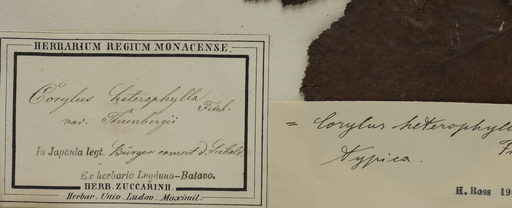 HERBARIUM REGIUM MONACENSE.
Corylus heterophylla Fisch.
var. Thunbergii
In Japonia legt. Bürger comest d. Siebold
Ex herbario Lugduno-Batavo.
HERB. ZUCCARINII.
Herbar. Univ. Ludov. Maximil.
= Corylus heterophyll
typica.
H. Ross 19